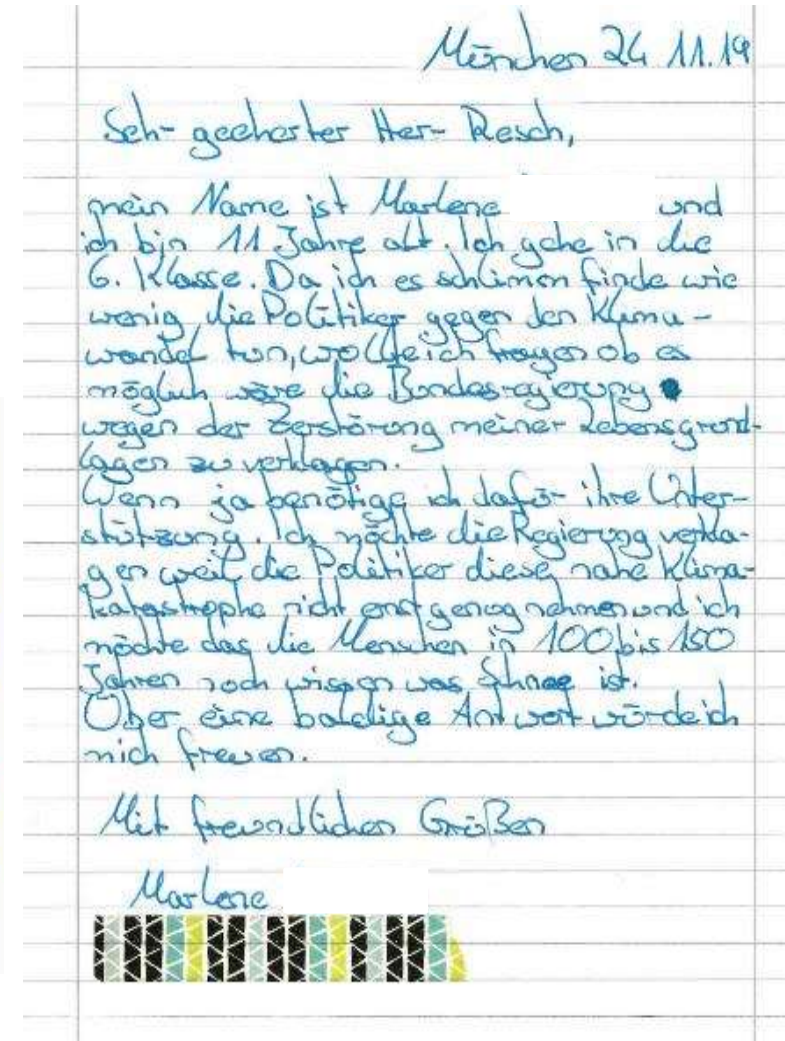 München 24 11.19
Sehr geehrter Herr Resch,
mein Name ist Marlene und
ich bin 11 Jahre alt. Ich gehe in die
6. Klasse. Da ich es schlimm finde wie
wenig die Politiker gegen den Klima-
wandel tun, wollte ich fragen ob es
möglich wäre die Bundesregierung
wegen der Zerstörung meiner Lebensgrund-
lagen zu verklagen.
Wenn ja benötige ich dafür ihre Unter-
stützung. Ich möchte die Regierung verkla-
gen weil die Politiker diese nahe Klima-
katastrophe nicht ernst genug nehmen und ich
möchte das die Menschen in 100 bis 150
Jahren noch wissen was Schnee ist.
Über eine baldige Antwort würde ich
mich freuen.
Mit freundlichen Grüßen
Marlene